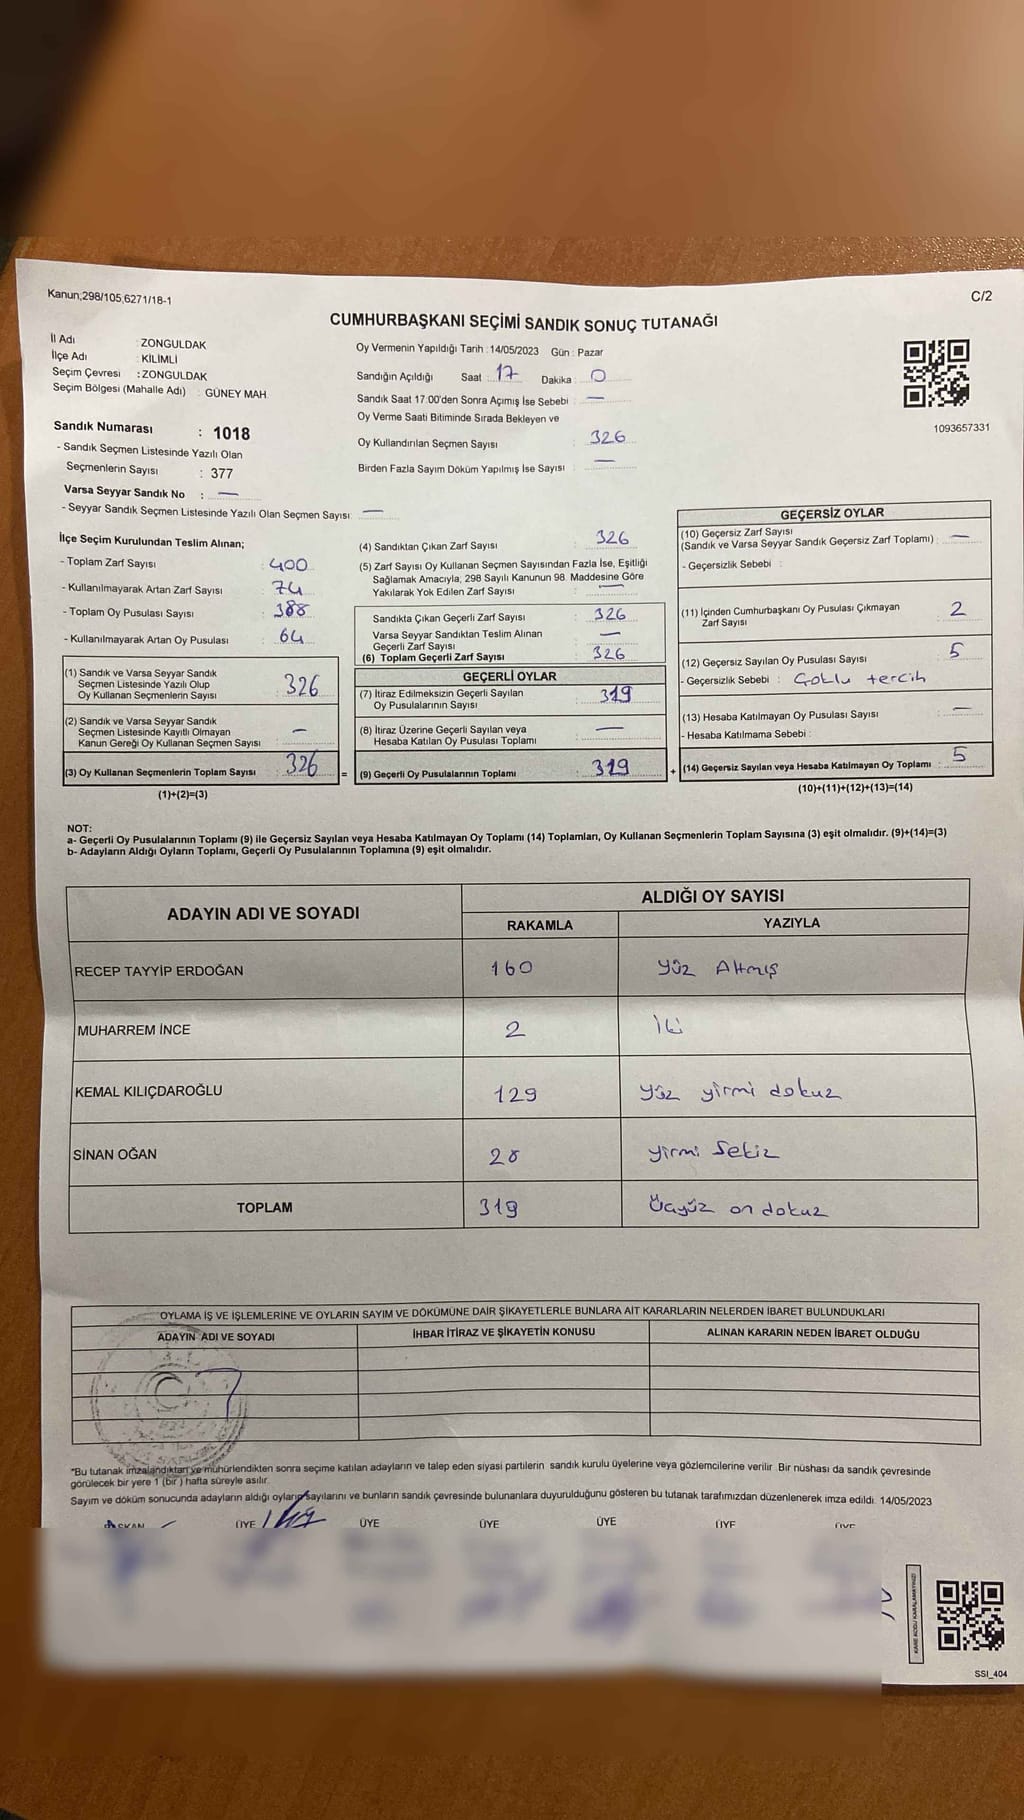 Kanun;298/105,6271/18-1
C/2
CUMHURBAŞKANI SEÇİMİ SANDIK SONUÇ TUTANAĞI
İl Adı : ZONGULDAK
İlçe Adı : KİLİMLİ
Seçim Çevresi : ZONGULDAK
Seçim Bölgesi (Mahalle Adı) : GÜNEY MAH.
Sandık Numarası : 1018
- Sandık Seçmen Listesinde Yazılı Olan
Seçmenlerin Sayısı : 377
Varsa Seyyar Sandık No : —
- Seyyar Sandık Seçmen Listesinde Yazılı Olan Seçmen Sayısı: —
Oy Vermenin Yapıldığı Tarih : 14/05/2023 Gün : Pazar
Sandığın Açıldığı Saat : 17 Dakika : 0
Sandık Saat 17:00'den Sonra Açımış İse Sebebi : —
Oy Verme Saati Bitiminde Sırada Bekleyen ve
Oy Kullandırılan Seçmen Sayısı : 326
Birden Fazla Sayım Döküm Yapılmış İse Sayısı : —
1093657331
İlçe Seçim Kurulundan Teslim Alınan;
- Toplam Zarf Sayısı : 400
- Kullanılmayarak Artan Zarf Sayısı : 74
- Toplam Oy Pusulası Sayısı : 388
- Kullanılmayarak Artan Oy Pusulası : 64
(1) Sandık ve Varsa Seyyar Sandık
Seçmen Listesinde Yazılı Olup
Oy Kullanan Seçmenlerin Sayısı : 326
(2) Sandık ve Varsa Seyyar Sandık
Seçmen Listesinde Kayıtlı Olmayan
Kanun Gereği Oy Kullanan Seçmen Sayısı : —
(3) Oy Kullanan Seçmenlerin Toplam Sayısı : 326
(1)+(2)=(3)
=
(4) Sandıktan Çıkan Zarf Sayısı : 326
(5) Zarf Sayısı Oy Kullanan Seçmen Sayısından Fazla İse, Eşitliği
Sağlamak Amacıyla; 298 Sayılı Kanunun 98. Maddesine Göre
Yakılarak Yok Edilen Zarf Sayısı : —
Sandıkta Çıkan Geçerli Zarf Sayısı : 326
Varsa Seyyar Sandıktan Teslim Alınan
Geçerli Zarf Sayısı : —
(6) Toplam Geçerli Zarf Sayısı : 326
GEÇERLİ OYLAR
(7) İtiraz Edilmeksizin Geçerli Sayılan
Oy Pusulalarının Sayısı : 319
(8) İtiraz Üzerine Geçerli Sayılan veya
Hesaba Katılan Oy Pusulası Toplamı : —
(9) Geçerli Oy Pusulalarının Toplamı : 319
+
GEÇERSİZ OYLAR
(10) Geçersiz Zarf Sayısı
(Sandık ve Varsa Seyyar Sandık Geçersiz Zarf Toplamı) : —
- Geçersizlik Sebebi :
(11) İçinden Cumhurbaşkanı Oy Pusulası Çıkmayan
Zarf Sayısı : 2
(12) Geçersiz Sayılan Oy Pusulası Sayısı : 5
- Geçersizlik Sebebi : Çoklu tercih
(13) Hesaba Katılmayan Oy Pusulası Sayısı : —
- Hesaba Katılmama Sebebi :
(14) Geçersiz Sayılan veya Hesaba Katılmayan Oy Toplamı : 5
(10)+(11)+(12)+(13)=(14)
NOT:
a- Geçerli Oy Pusulalarının Toplamı (9) ile Geçersiz Sayılan veya Hesaba Katılmayan Oy Toplamı (14) Toplamları, Oy Kullanan Seçmenlerin Toplam Sayısına (3) eşit olmalıdır. (9)+(14)=(3)
b- Adayların Aldığı Oyların Toplamı, Geçerli Oy Pusulalarının Toplamına (9) eşit olmalıdır.
ADAYIN ADI VE SOYADI
ALDIĞI OY SAYISI
RAKAMLA YAZIYLA
RECEP TAYYİP ERDOĞAN 160 Yüz Altmış
MUHARREM İNCE 2 İki
KEMAL KILIÇDAROĞLU 129 Yüz yirmi dokuz
SİNAN OĞAN 28 yirmi Sekiz
TOPLAM 319 Üçyüz on dokuz
OYLAMA İŞ VE İŞLEMLERİNE VE OYLARIN SAYIM VE DÖKÜMÜNE DAİR ŞİKAYETLERLE BUNLARA AİT KARARLARIN NELERDEN İBARET BULUNDUKLARI
ADAYIN ADI VE SOYADI İHBAR İTİRAZ VE ŞİKAYETİN KONUSU ALINAN KARARIN NEDEN İBARET OLDUĞU
*Bu tutanak imzalandıktan ve mühürlendikten sonra seçime katılan adayların ve talep eden siyasi partilerin sandık kurulu üyelerine veya gözlemcilerine verilir. Bir nüshası da sandık çevresinde
görülecek bir yere 1 (bir ) hafta süreyle asılır.
Sayım ve döküm sonucunda adayların aldığı oyların sayılarını ve bunların sandık çevresinde bulunanlara duyurulduğunu gösteren bu tutanak tarafımızdan düzenlenerek imza edildi. 14/05/2023
BAŞKAN ÜYE ÜYE ÜYE ÜYE ÜYE ÜYE
KARE KODU KARALAMAYINIZ!
SSI_404